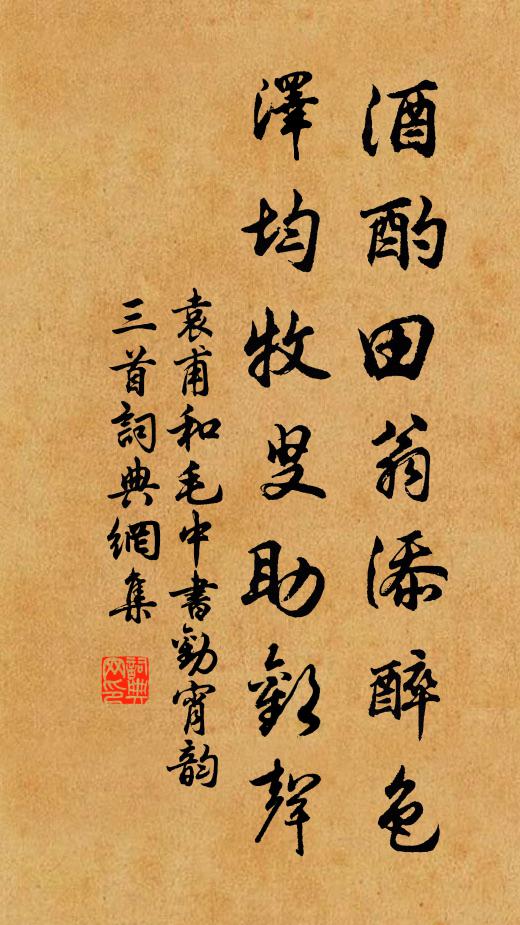 酒酌田翁添醉色
澤均牧叟助歡聲
袁甫和毛中書勸宵韵
三首詞典網集
詞典
网印